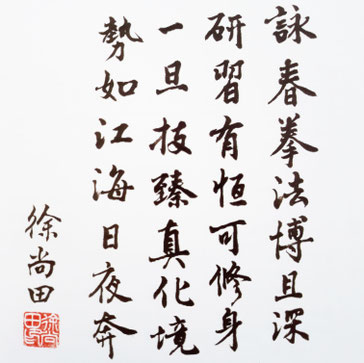 詠春拳法博且深
研習有恒可修身
一旦技臻真化境
勢如江海日夜奔
徐尚田